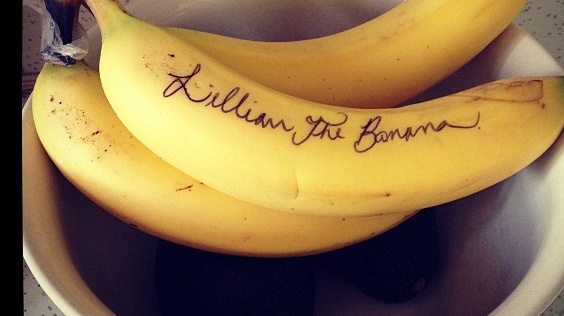 Lillian The Banana